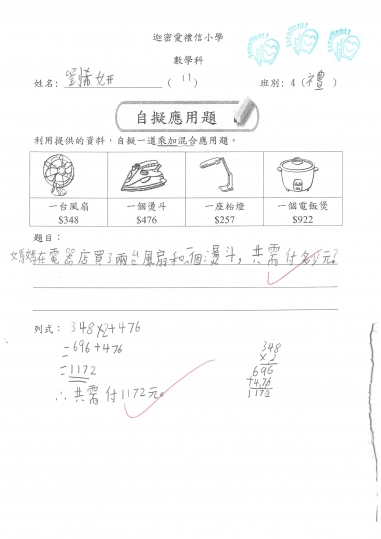 迦密愛禮信小學
數學科
姓名: 劉情妍 (11) 班別: 4 (禮)
自擬應用題
利用提供的資料，自擬一道乘加混合應用題。
一台風扇 一個熨斗 一座枱燈 一個電飯煲
$348 $476 $257 $922
題目：
媽媽在電器店買了兩台風扇和一個熨斗，共需付多少元？
列式： 348×2+476
=696+476
=1172
∴共需付1172元。
348
×2
696
+476
1172